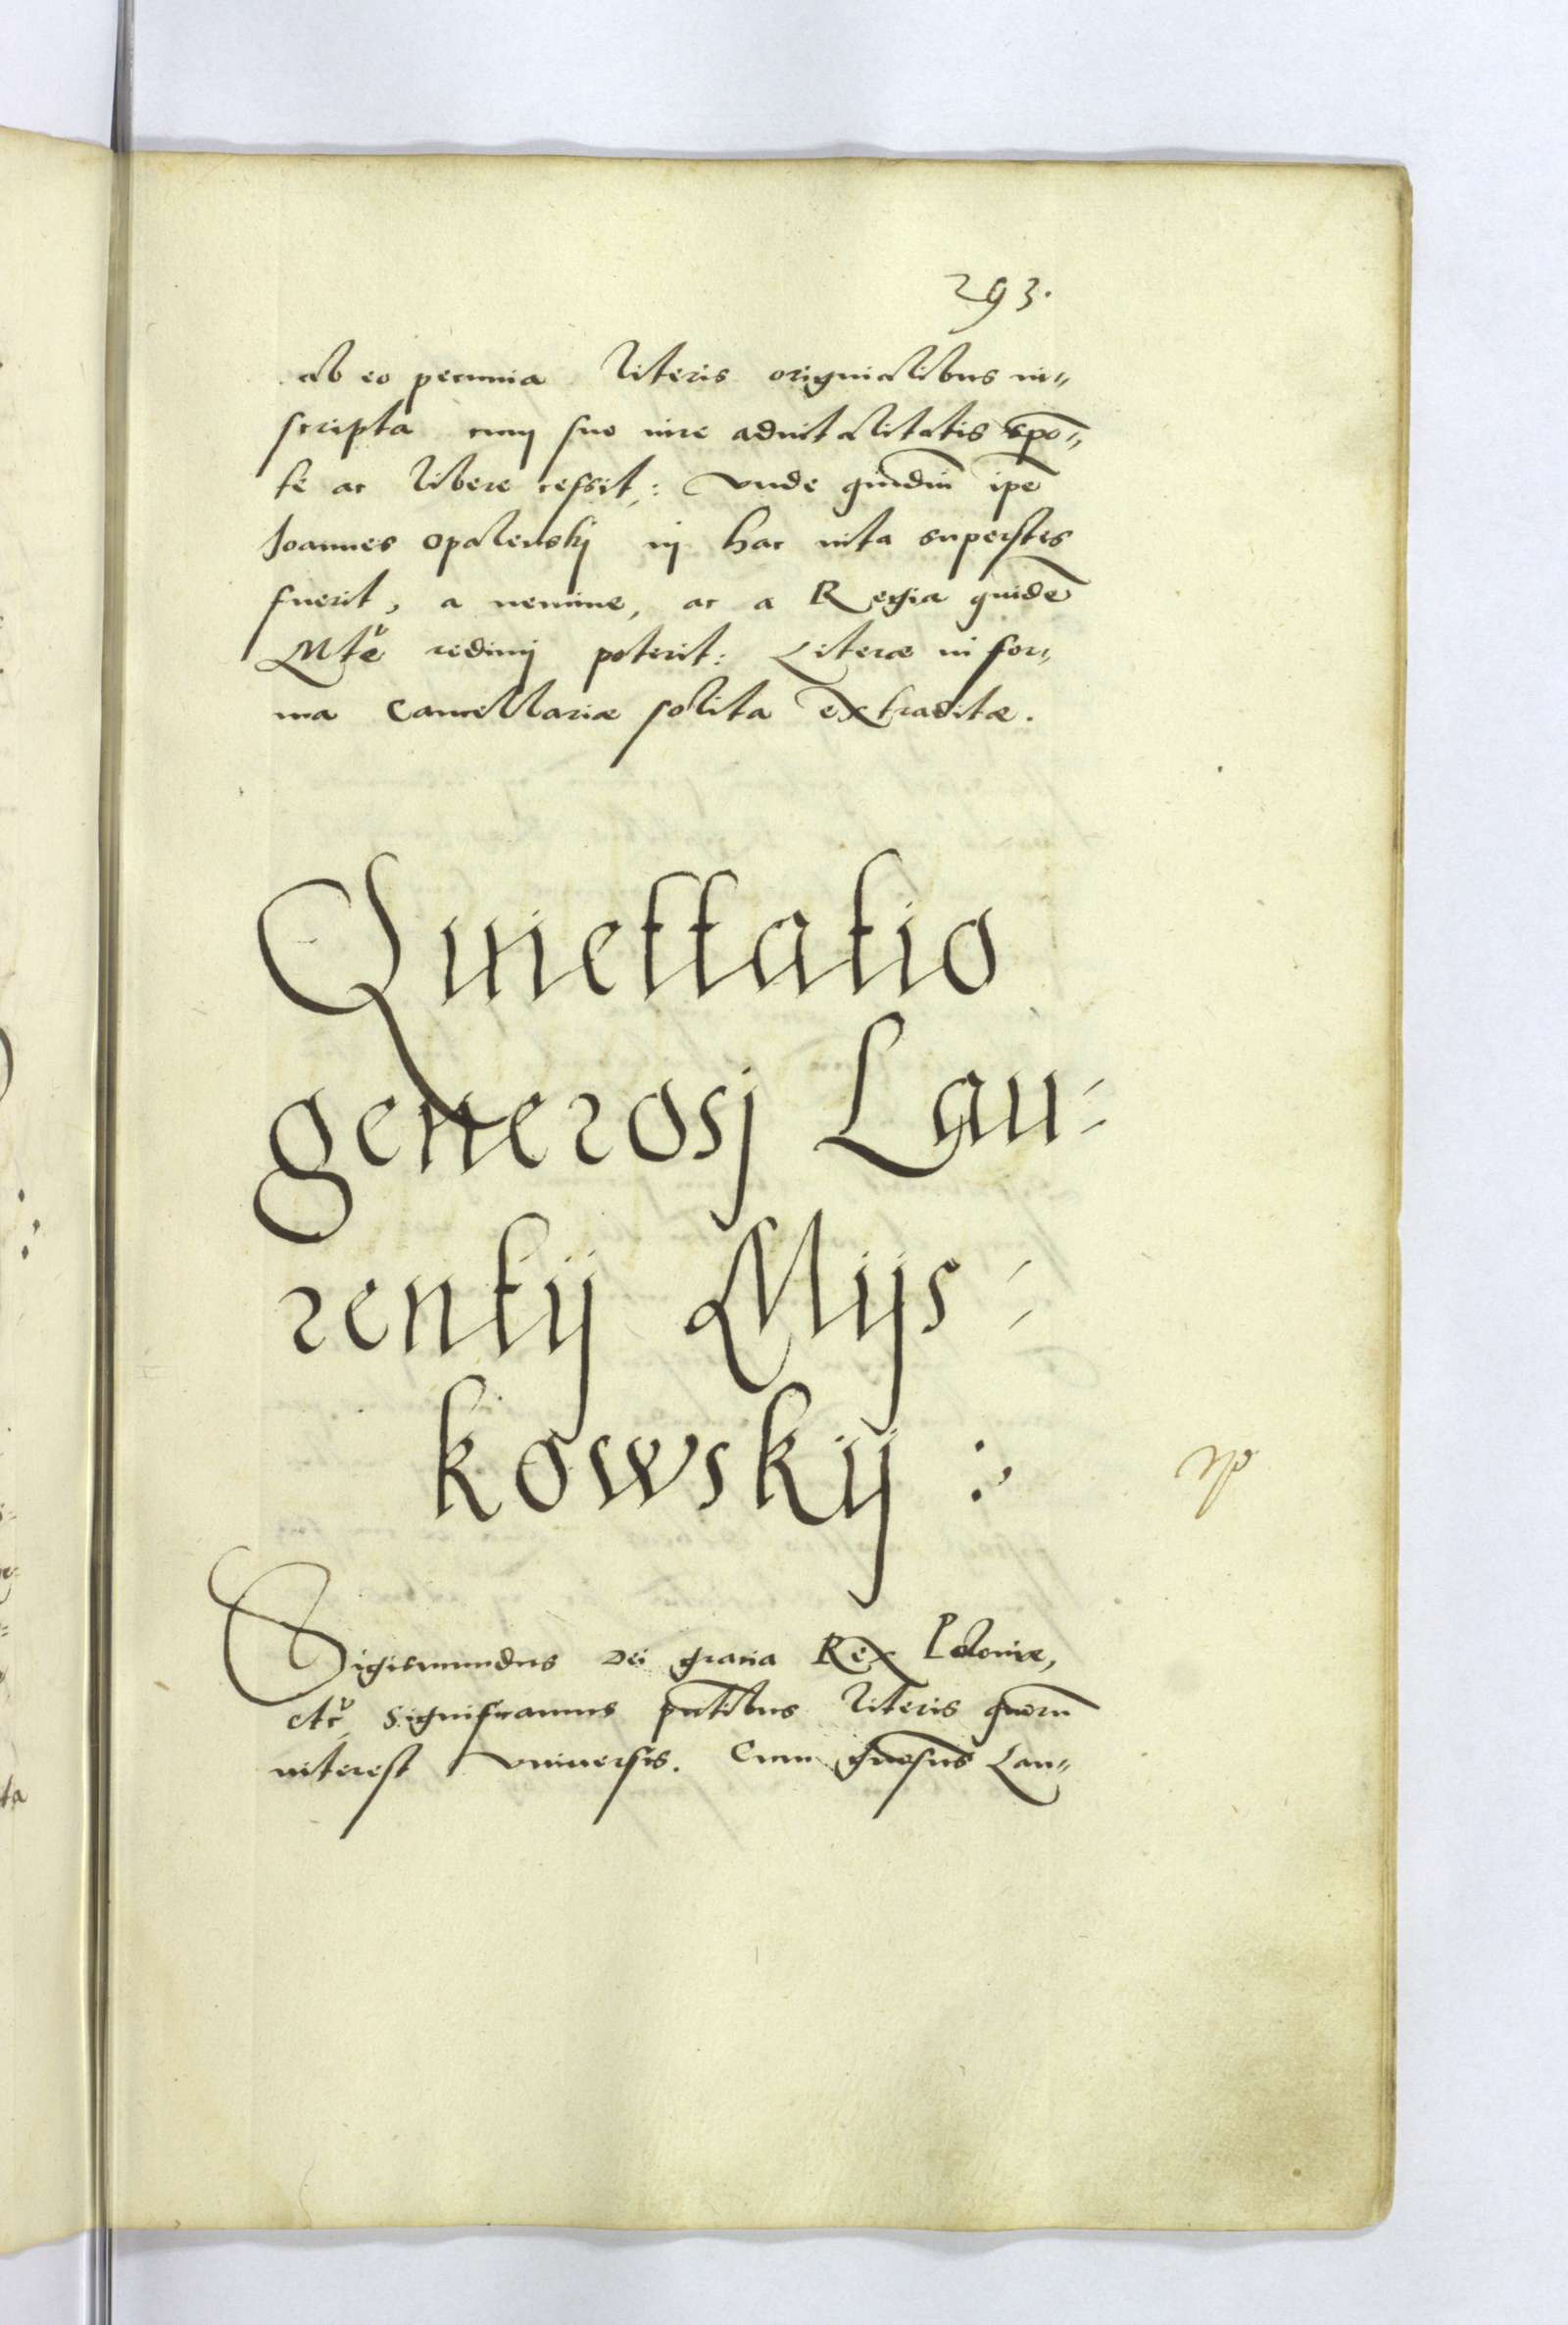 293.
ab eo pecunia literis originalibus in„
scripta cum suo iure aduitalitatis spō„
te ac libere cessit: vnde quādiu ipē
Joannes Opalenskj in hac vita superstes
fuerit, a nemine, ac a Regia quidē
Mte redimj poterit: Literæ in for„
ma Cancellariæ solita extraditæ.
Quiettatio
generosj Lau:
rentij Mÿs:
kowskÿ :,
Sigismundus Dei gracia Rex Poloniæ,
etc̃ Significamus pñtibus literis quorū
interest vniuersis. Cum gñosus Lau„